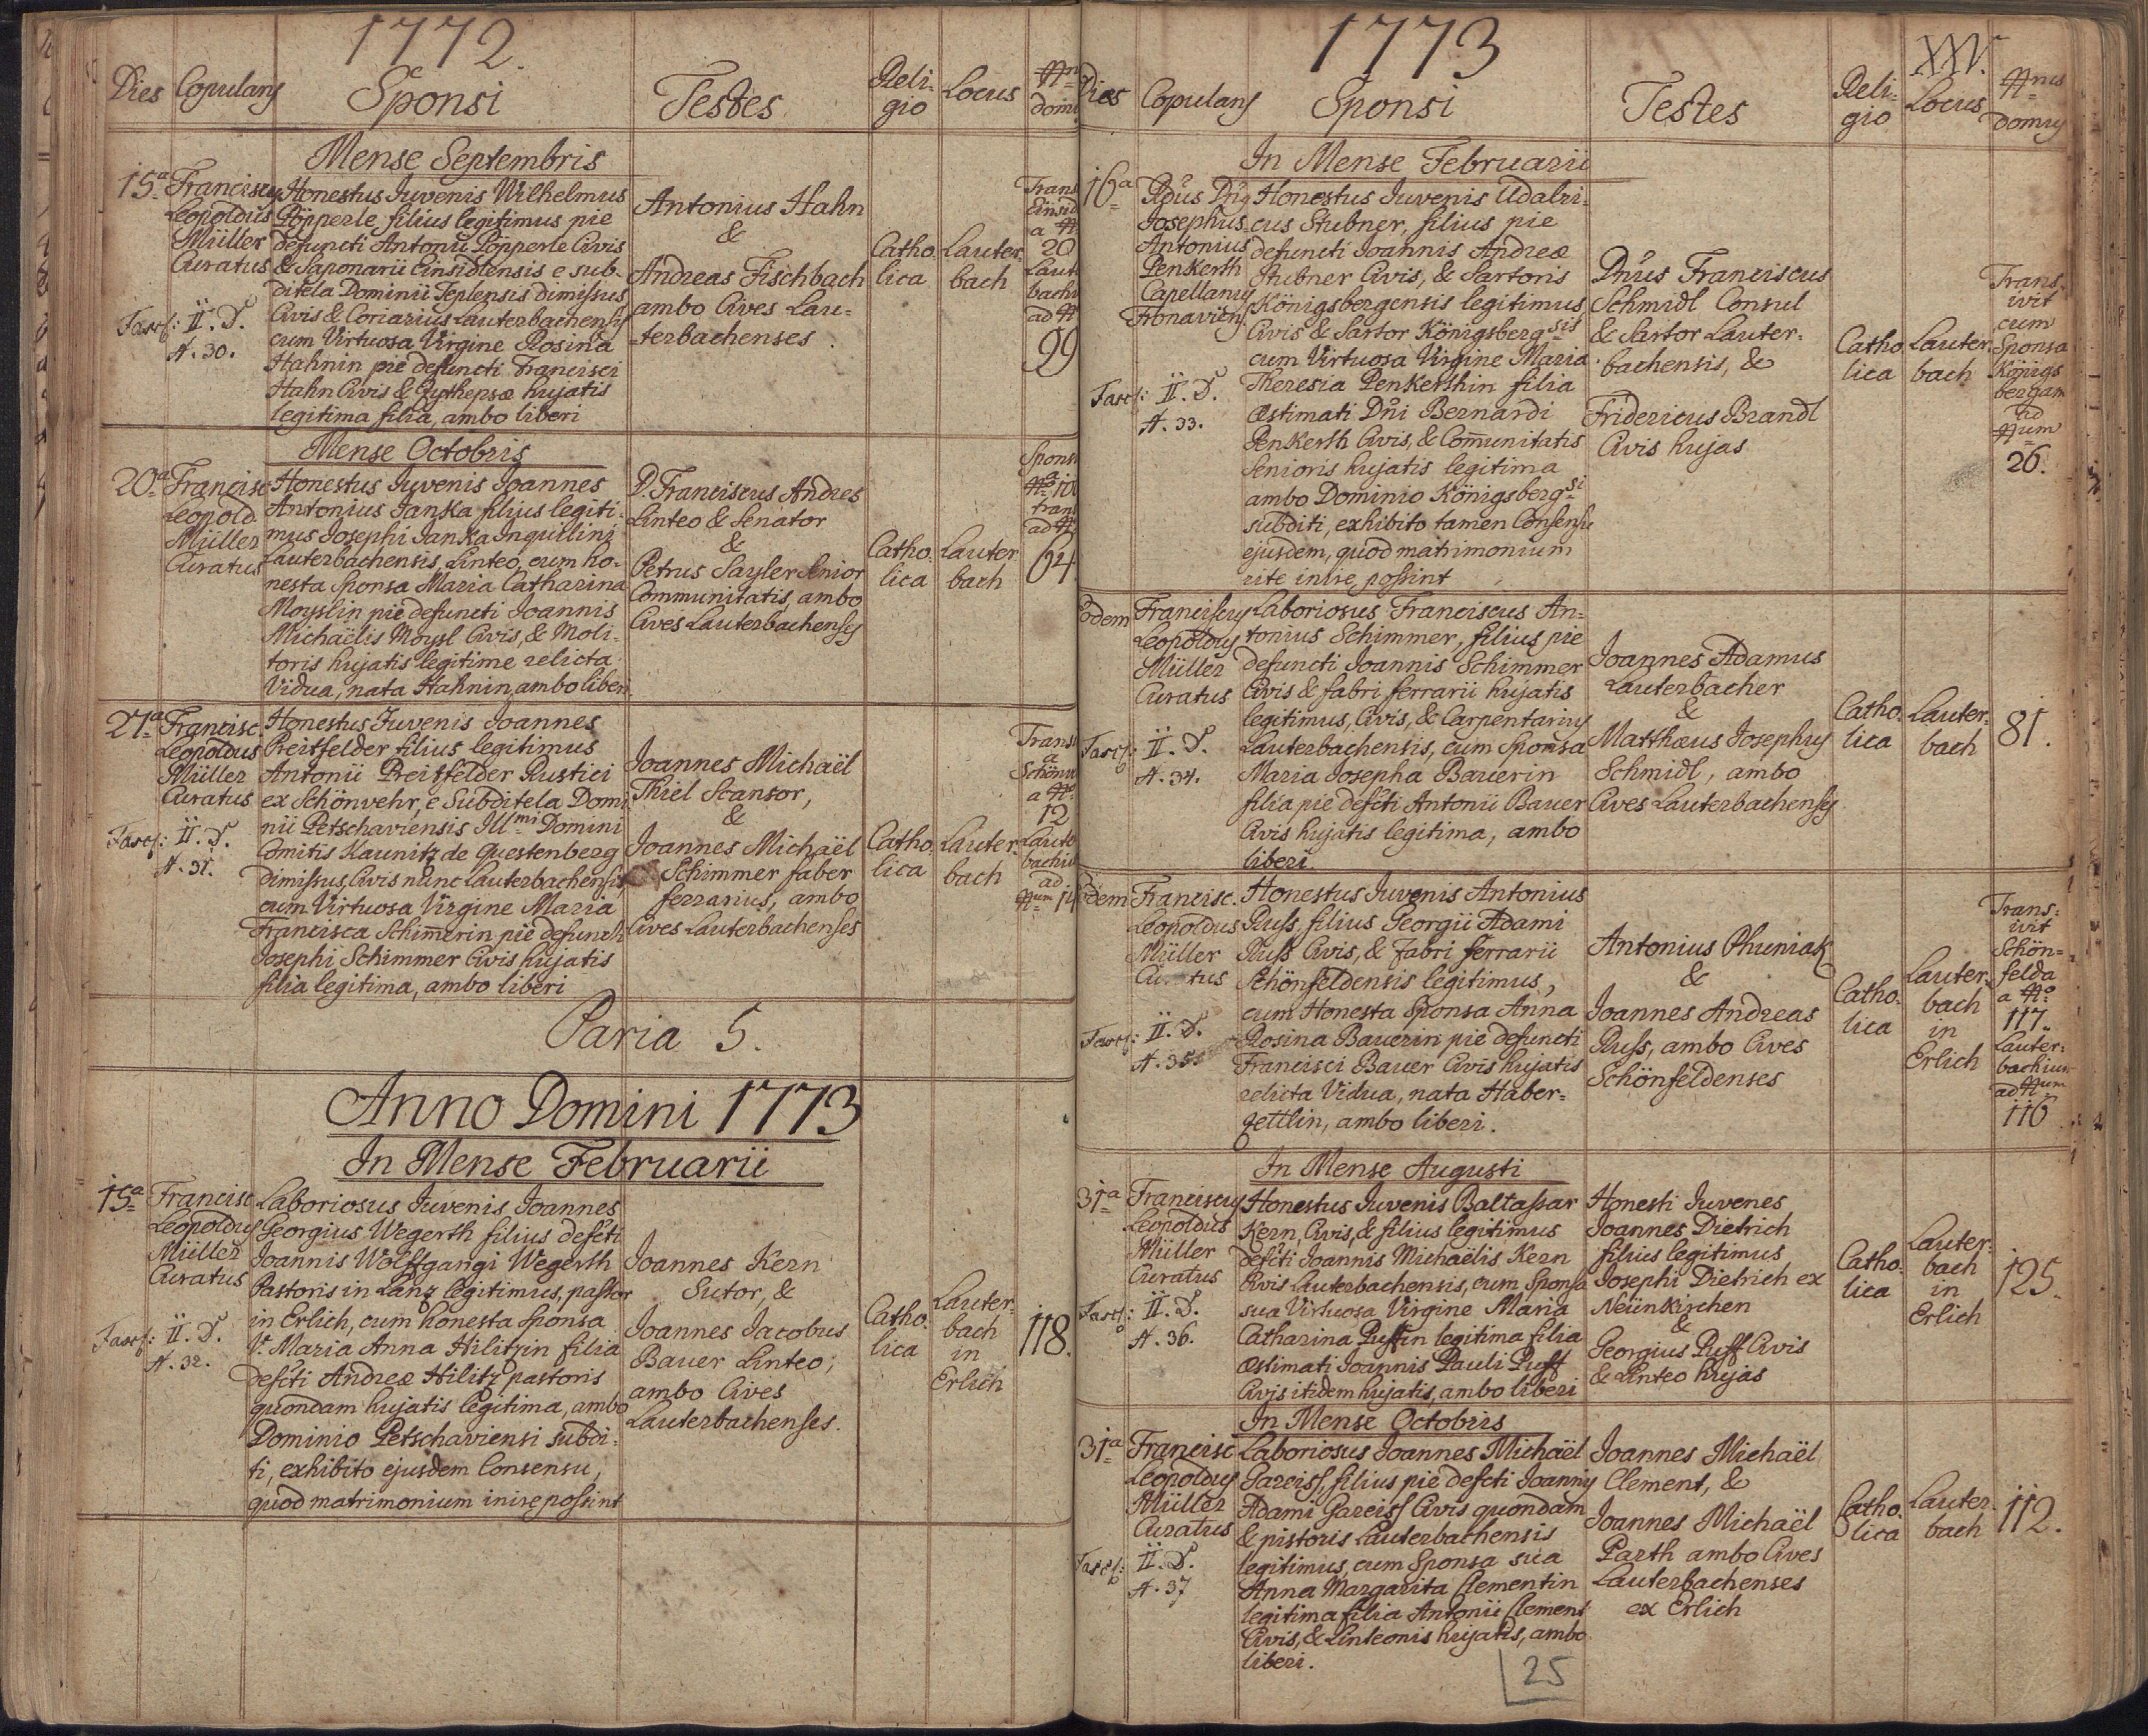 1772.
Dies
Copulans
Sponsi
Testes
Reli-
gio
Locus
Nrus
domus
Mense Septembris
15ª
Franciscus
Leopoldus
Müller
Curatus
Fasc: II. D.
N. 30.
Honestus Juvenis Wilhelmus
Pöpperle filius legitimus pie
defuncti Antonii Pöpperle Civis
& Saponarii Einsidlensis e sub-
ditela Dominii Teplensis dimissus
Civis & Coriarius Lauterbachensis
cum Virtuosa Virgine Rosina
Hahnin pie defuncti Francisci
Hahn Civis & Zythepsæ hujatis
legitima filia, ambo liberi
Antonius Hahn
&
Andreas Fischbach
ambo Cives Lau-
terbachenses.
Catho.
lica
Lauter.
bach
Trans
Einsid
a N
20
Laut
bach
ad N
99
Mense Octobris
20ª
Francisc
Leopold.
Müller
Curatus
Honestus Juvenis Joannes
Antonius Janka filius legiti-
mus Josephi Janka Inquilini
Lauterbachensis, Linteo, cum ho-
nesta Sponsa Maria Catharina
Moyslin pie defuncti Joannis
Michaëlis Moysl Civis, & Moli-
toris hujatis legitime relicta
Vidua, nata Hahnin, ambo liberi
D. Franciscus Andres
Linteo & Senator
&
Petrus Sayler Senior
Communitatis, ambo
Cives Lauterbachenses
Catho.
lica
Lauter
bach
Spons
trans
ad N
64.
27ª
Francisc.
Leopoldus
Müller
Curatus
Fasc: II. D.
N. 31.
Honestus Juvenis Joannes
Preitfelder filius legitimus
Antonii Preitfelder Rustici
ex Schönwehr, e Subditela Domi
nii Petschaviensis Illmi Domini
Comitis Kaunitz de Questenberg
dimissus, Civis nunc Lauterbachensis
cum Virtuosa Virgine Maria
Francisca Schimmerin pie defuncti
Josephi Schimmer Civis hujatis
filia legitima, ambo liberi
Joannes Michaël
Thiel Scansor,
&
Joannes Michaël
Schimmer faber
ferrarius, ambo
Cives Lauterbachenses
Catho.
lica
Lauter.
bach
Trans
a
Schönw
a No
12
Laute
bachi
ad
Num
Paria 5.
Anno Domini 1773
In Mense Februarii
15ª
Francisc
Leopoldus
Müller
Curatus
Fasc: II. D.
N. 32.
Laboriosus Juvenis Joannes
Georgius Wegerth filius defcti
Joannis Wolffgangi Wegerth
Pastoris in Lanz legitimus, pastor
in Erlich, cum honesta Sponsa
V. Maria Anna Hilitzin filia
defcti Andreæ Hilitz pastoris
quondam hujatis legitima, ambo
Dominio Petschaviensi subdi-
ti, exhibito ejusdem Consensu,
quod matrimonium inire possint
Joannes Kern
Sutor, &
Joannes Jacobus
Bauer Linteo;
ambo Cives
Lauterbachenses.
Catho.
lica
Lauter-
bach
in
Erlich
118.
1773
XXV.
Dies
Copulans
Sponsi
Testes
Reli-
gio
Locus
Nrus
Domus
In Mense Februarii
16ª
Rdus Dns
Josephus
Antonius
Penkerth
Capellanus
Fronavien.
Fasc: II. D.
N. 33.
Honestus Juvenis Udalri-
cus Stubner, filius pie
defuncti Joannis Andreæ
Stubner Civis, & Sartoris
Königsbergensis legitimus
Civis & Sartor Königsbergsis
cum Virtuosa Virgine Maria
Theresia Penkerthin filia
Æstimati Dni Bernardi
Penkerth Civis, & Com̄unitatis
Senioris hujatis legitima
ambo Dominio Königsbergsi
subditi, exhibito tamen Consensu
ejusdem, quod matrimonium
rite inire possint
Dnus Franciscus
Schmidl Consul
& Sartor Lauter-
bachensis, &
Fridericus Brandl
Civis hujas
Catho
lica
Lauter.
bach
Trans-
ivit
cum
Sponsa
Königs
bergam
ad
Num
26.
Eodem
Franciscus
Leopoldus
Müller
Curatus
Fasc: II. D.
N. 34.
Laboriosus Franciscus An-
tonius Schimmer, filius pie
defuncti Joannis Schimmer
Civis & fabri ferrarii hujatis
legitimus, Civis, & Carpentarius
Lauterbachensis, cum Sponsa
Maria Josepha Bauerin
filia pie defcti Antonii Bauer
Civis hujatis legitima, ambo
liberi.
Joannes Adamus
Lauterbacher
&
Matthæus Josephus
Schmidl, ambo
Cives Lauterbachenses
Catho.
lica
Lauter-
bach
81.
Eodem
Francisc.
Leopoldus
Müller
Curatus
Fasc: II. D.
N. 35
Honestus Juvenis Antonius
Russ, filius Georgii Adami
Russ Civis, & Fabri ferrarii
Schönfeldensis legitimus,
cum Honesta Sponsa Anna
Rosina Bauerin pie defuncti
Francisci Bauer Civis hujatis
relicta Vidua, nata Haber-
zettlin, ambo liberi.
Antonius Phuniak
&
Joannes Andreas
Russ, ambo Cives
Schönfeldenses
Catho.
lica
Lauter.
bach
in
Erlich
Trans-
ivit
Schön-
felda
a No
117.
Lauter-
bachium
ad Num
116
In Mense Augusti
31ª
Franciscus
Leopoldus
Müller
Curatus
Fasc: II. D.
N. 36.
Honestus Juvenis Baltassar
Kern, Civis, & filius legitimus
defcti Joannis Michaëlis Kern
Civis Lauterbachensis, cum Sponsa
sua Virtuosa Virgine Maria
Catharina Puffin legitima filia
æstimati Joannis Pauli Puff
Civis itidem hujatis, ambo liberi
Honesti Juvenes
Joannes Dietrich
filius legitimus
Josephi Dietrich ex
Neünkirchen
&
Georgius Puff Civis
& Linteo hujas
Catho.
lica
Lauter-
bach
in
Erlich
125.
In Mense Octobris
31ª
Francisc
Leopoldus
Müller
Curatus
Fasc: II. D.
N. 37
Laboriosus Joannes Michaël
Gareiss, filius pie defcti Joannis
Adami Gareiss Civis quondam
& pistoris Lauterbachensis
legitimus, cum Sponsa sua
Anna Margarita Clementin
legitima filia Antonii Clement
Civis, & Linteonis hujatis, ambo
liberi.
Joannes Michaël
Clement, &
Joannes Michaël
Parth ambo Cives
Lauterbachenses
ex Erlich
Catho.
lica
Lauter.
bach
112.
25